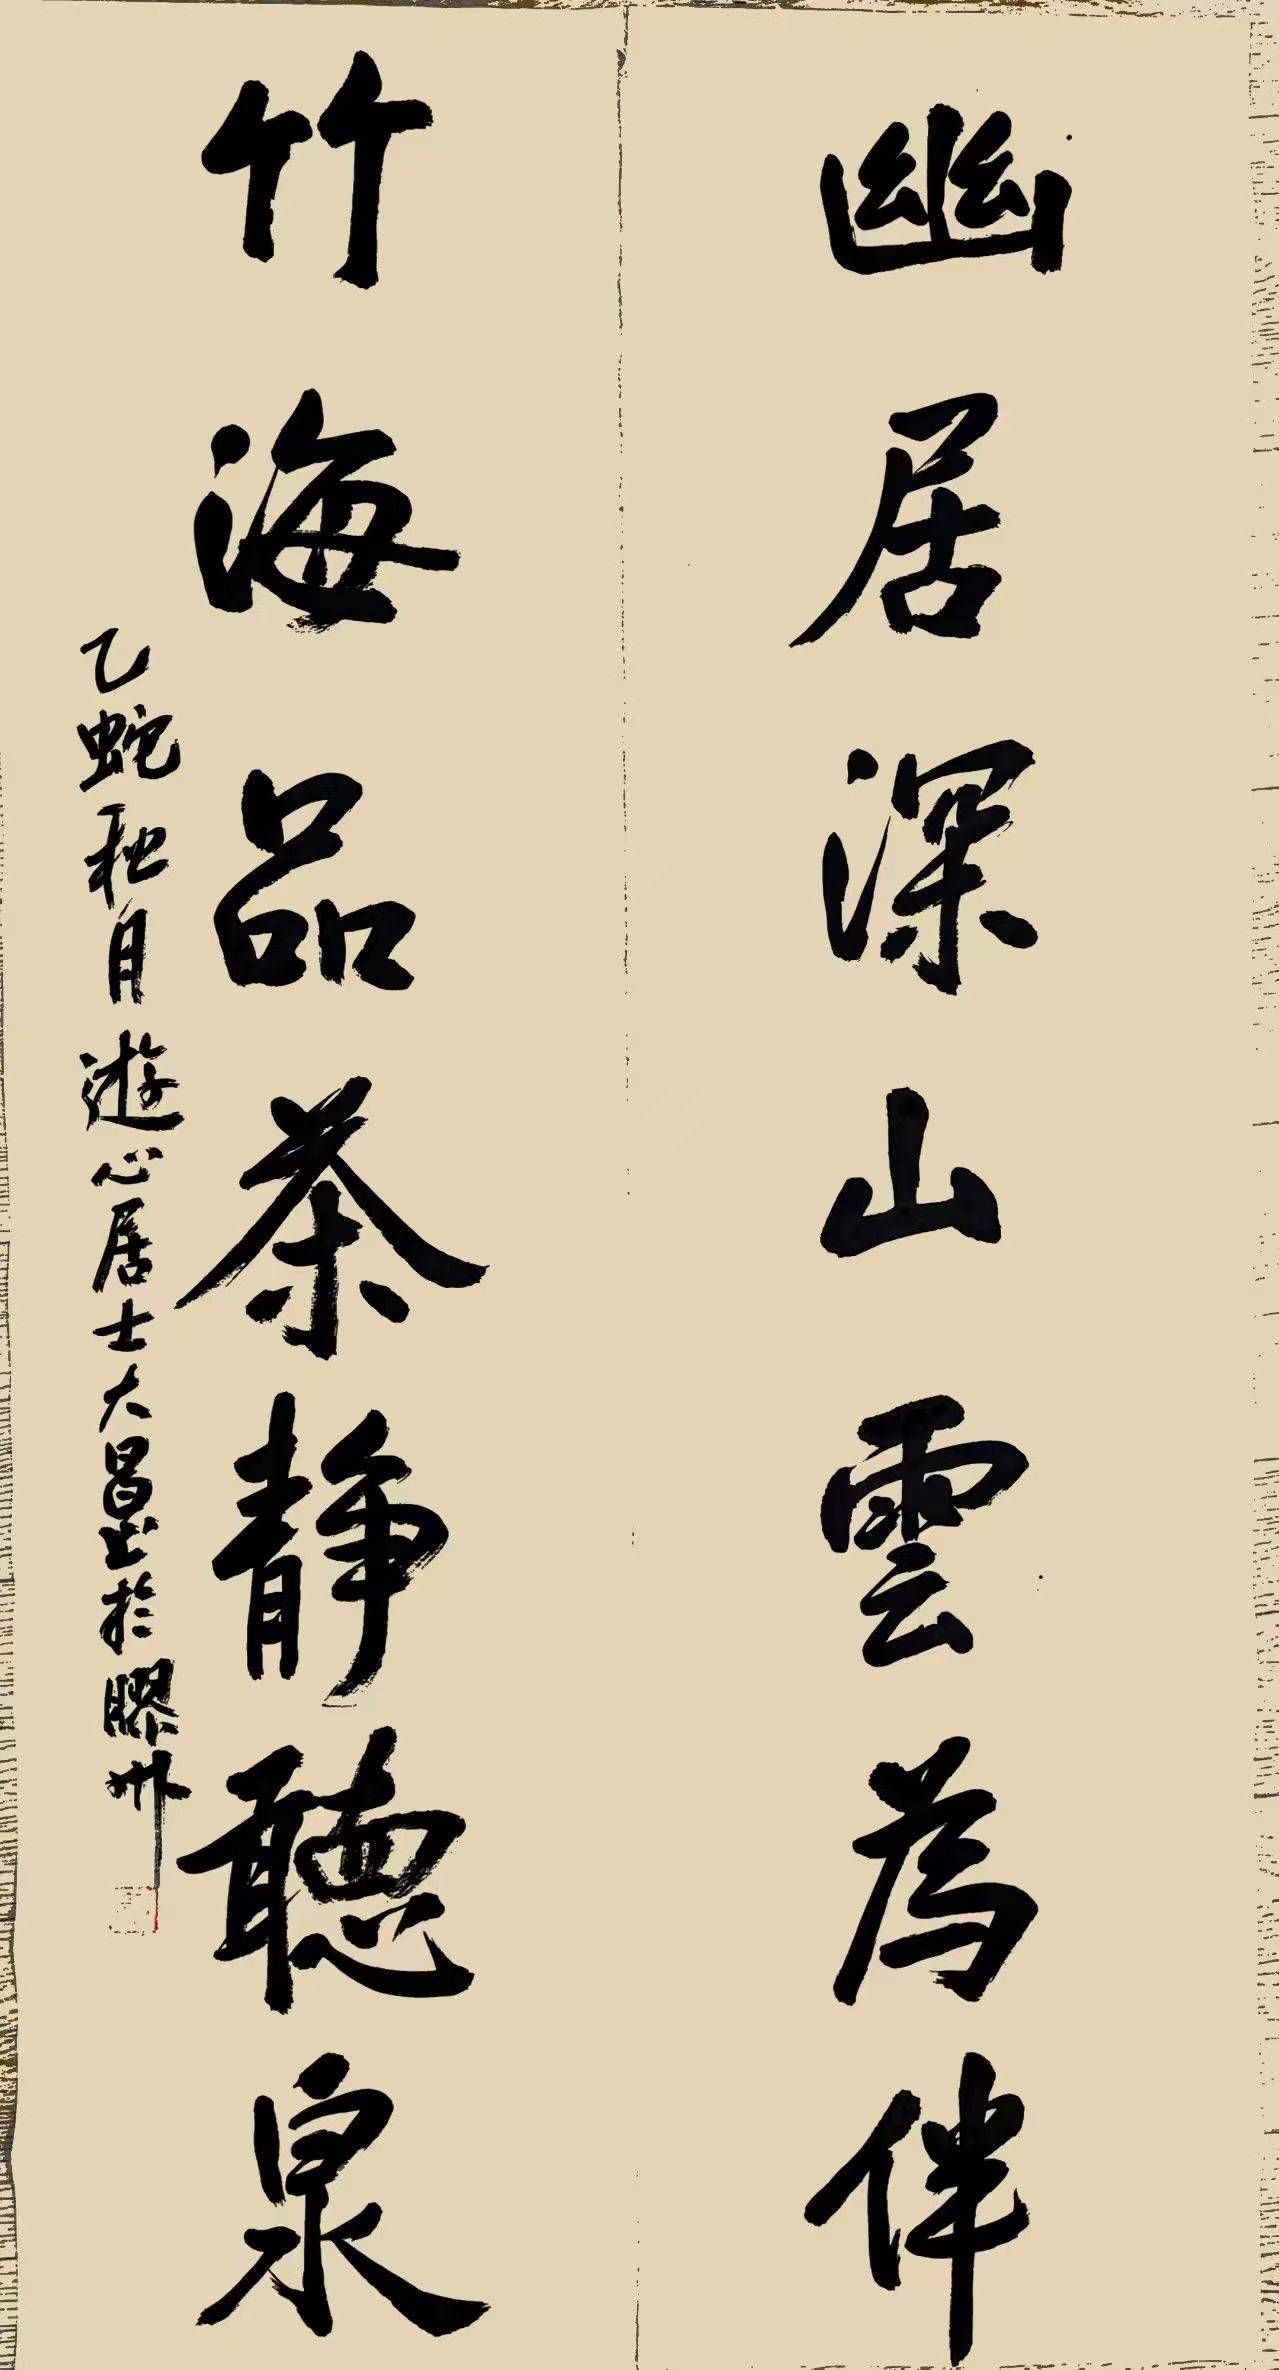 幽居深山雲為伴
竹海品茶静聽泉
乙蛇秋月遊心居士大昌书於膠州